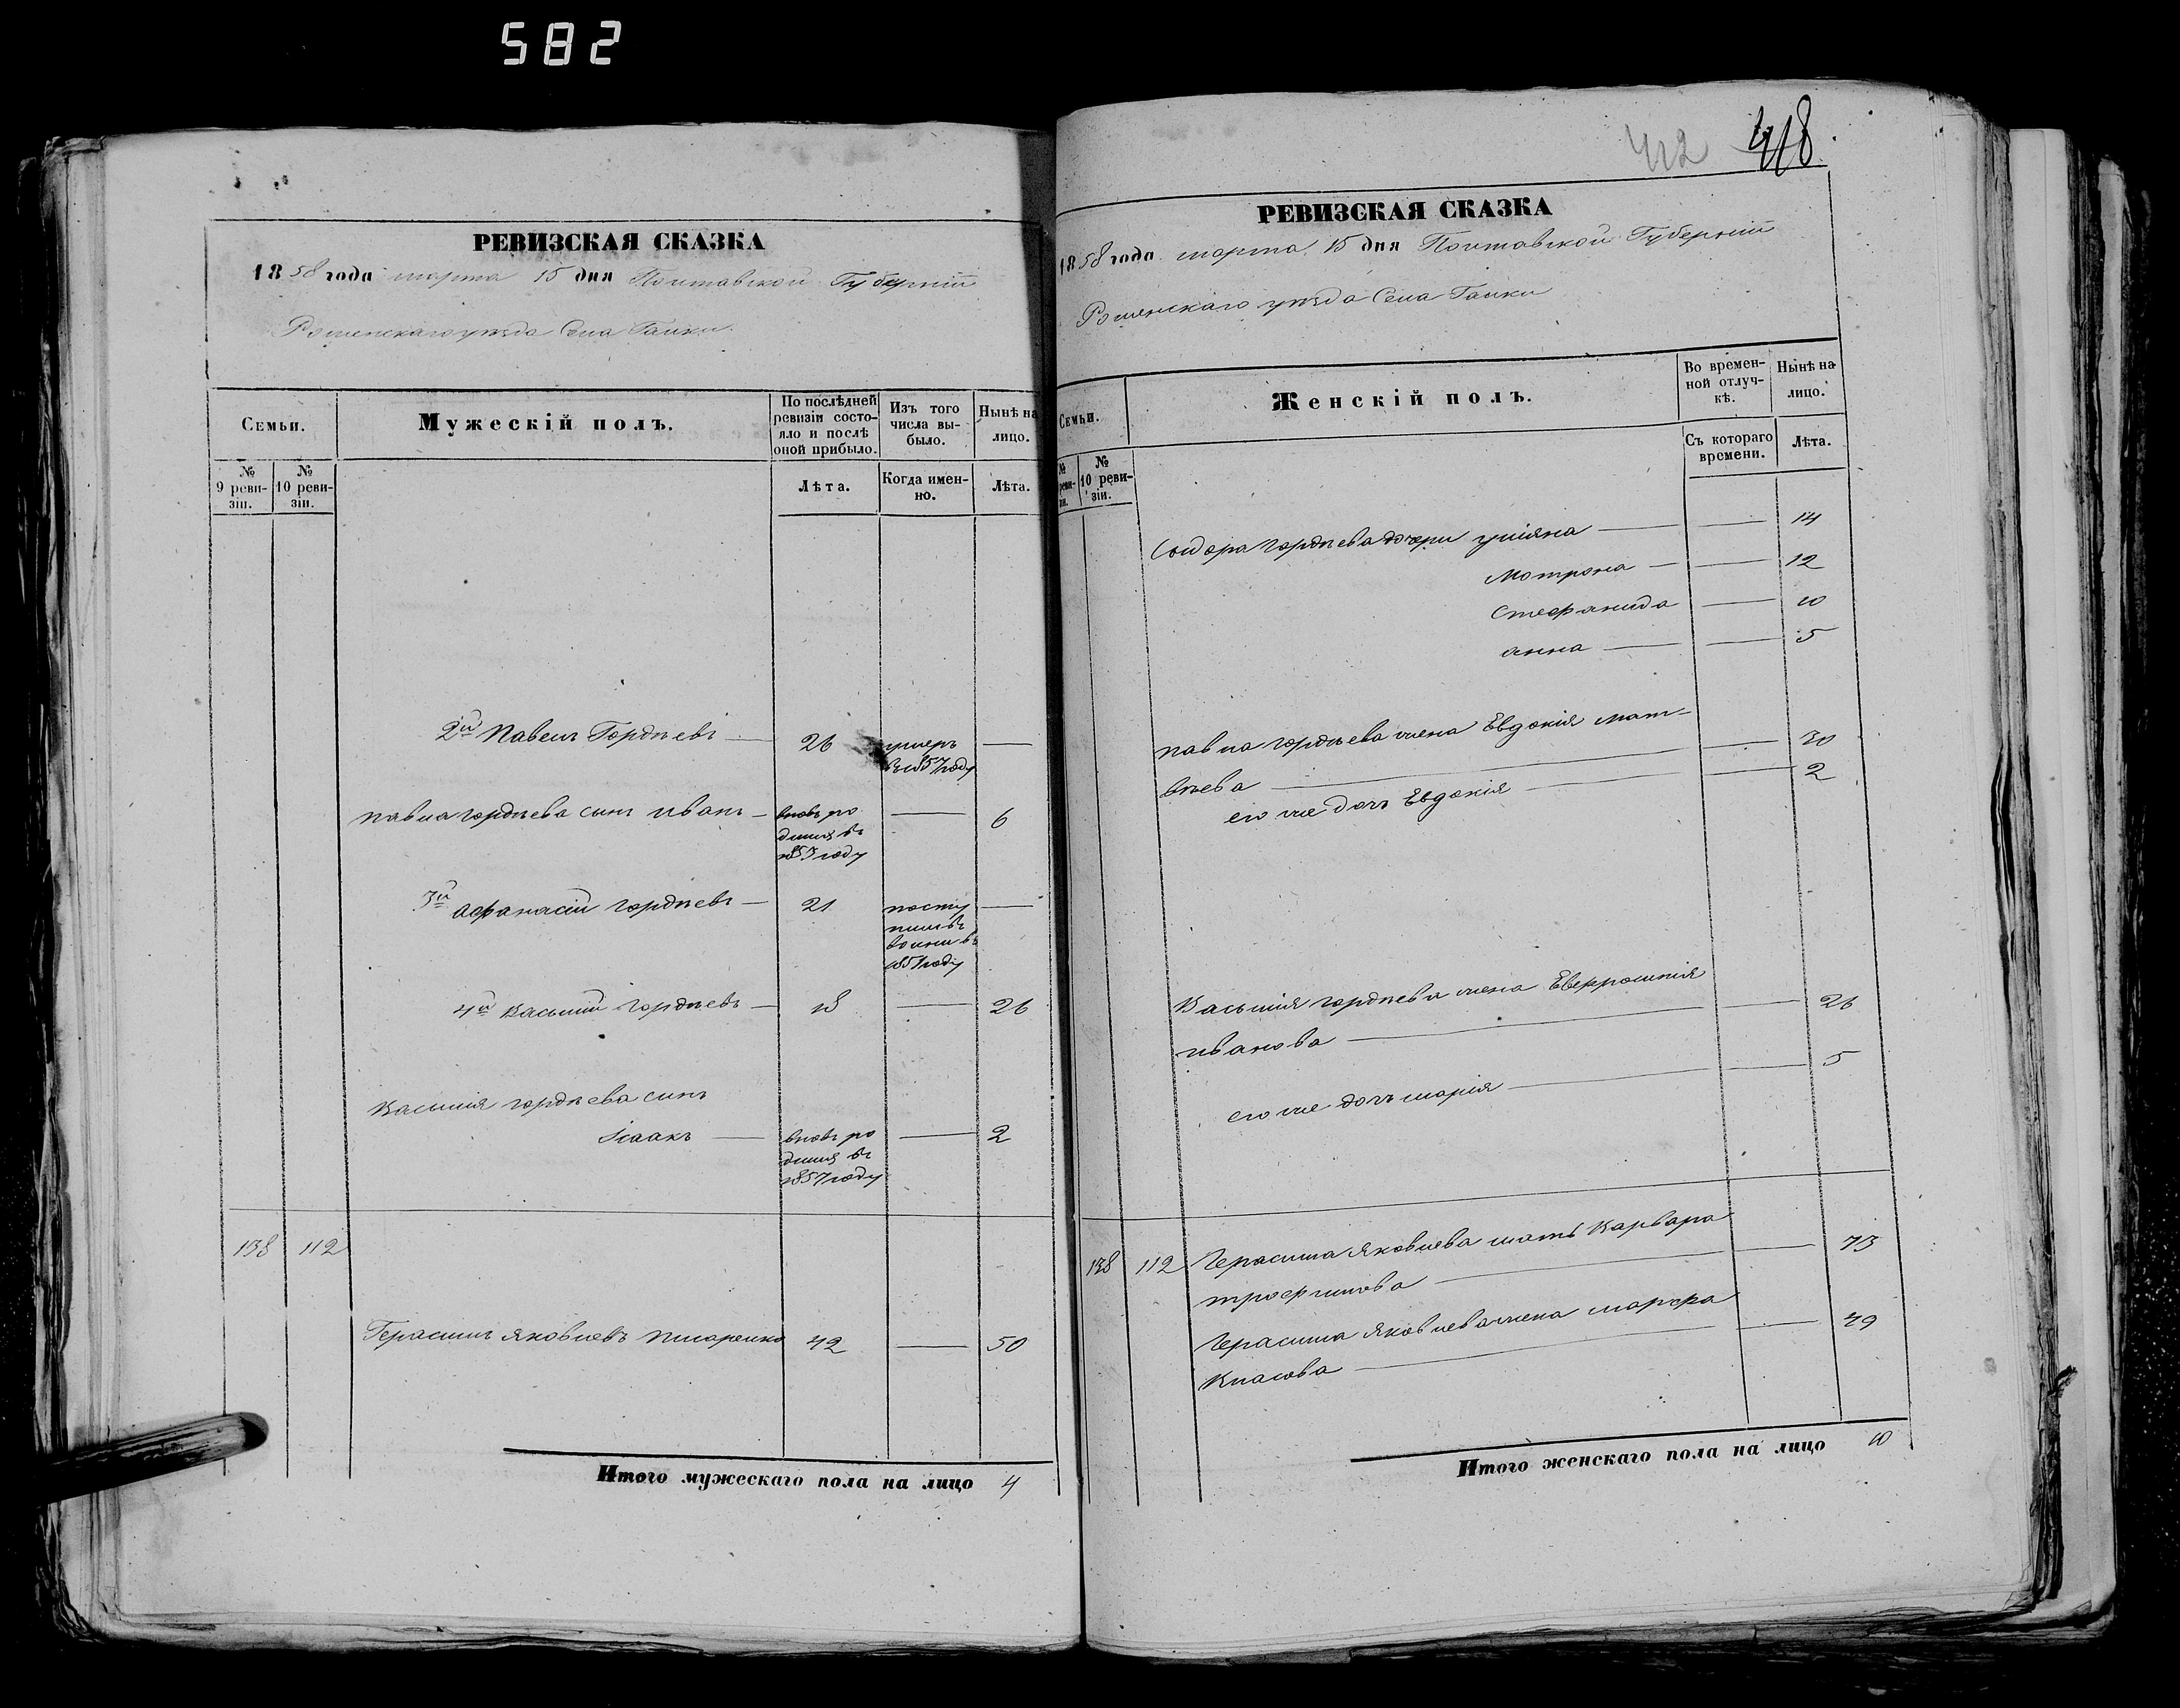 582
РЕВИЗСКАЯ СКАЗКА
1858 года марта 15 дня Полтавской Губерніи
Роменскаго уезда Села Галки
Семьи.
Мужескій полъ.
По послѣдней ревизіи состо-
яло и послѣ оной прибыло.
Изъ того числа вы-
было.
Нынѣ на лицо.
№ 9 реви-
зіи.
№ 10 реви-
зіи.
Лѣта.
Когда имен-
но.
Лѣта.
2й Павелъ Гордѣевъ — 26 умеръ —
въ 1857 году
Павла Гордѣева сынъ Иванъ — вновь ро — 6
дился въ
году
3й Афанасій Гордѣевъ — 21 посту —
въ
году
4й Василій Гордѣевъ — 18 — 26
Василія Гордѣева сынъ
Ісаакъ — вновь ро — 2
дился въ
1857 году
138 112
Герасимъ Яковлевъ Писаренко 42 — 50
Итого мужескаго пола на лицо 4
412 418
РЕВИЗСКАЯ СКАЗКА
1858 года марта 15 дня Полтавской Губерніи
Роменскаго уезда Села Галки
Семьи.
Женскій полъ.
Во времен-
ной отлуч-
кѣ.
Нынѣ на лицо.
№ реви-
зіи.
№ 10 реви-
зіи.
Съ котораго времени.
Лѣта.
Гордѣева дочери Уліяна — — 14
Мотрона — — 12
Стефанида — 10
Анна — — 5
Павла Гордѣева жена Евдокія Мат-
вѣева — — 30
его же дочь Евдокія — — 2
Василія Гордѣева жена
Иванова — — 26
его же дочь Марія — — 5
138 112 Герасима Яковлева мать Варвара
Трофимова — — 73
Герасима Яковлева жена Марфа
Власова — — 49
Итого женскаго пола на лицо 10